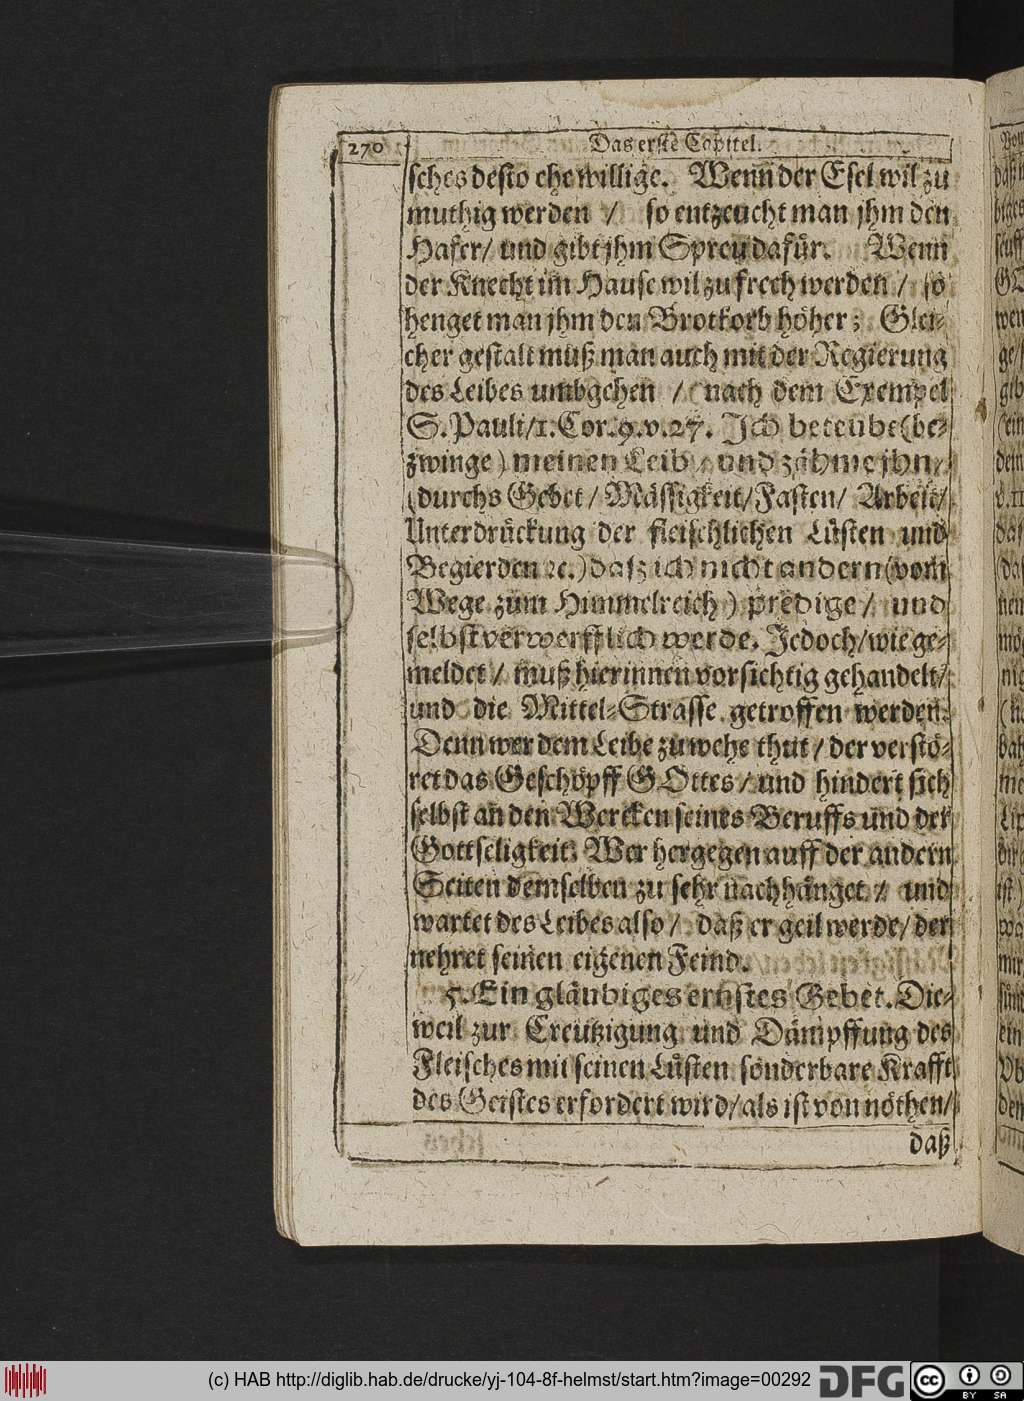 270 Das erste Capitel.
sches desto ehe willige. Wenn der Esel wil zu
muthig werden / so entzeucht man jhm den
Hafer/ und gibt jhm Spreu dafür. Wenn
der Knecht im Hause wil zu frech werden / so
henget man jhm den Brotkorb höher; Glei-
cher gestalt muß man auch mit der Regierung
des Leibes umbgehen / nach dem Exempel
S. Pauli/1. Cor. 9. v. 27. Ich beteube (be-
zwinge) meinen Leib / und zähme jhn /
(durchs Gebet / Mässigkeit/ Fasten/ Arbeit/
Unterdrückung der fleischlichen Lüsten und
Begierden ꝛc.) dasz ich nicht andern (vom
Wege zum Himmelreich) predige / und
selbst verwerfflich werde. Jedoch/ wie ge-
meldet / muß hierinnen vorsichtig gehandelt/
und die Mittel-Strasse getroffen werden.
Denn wer dem Leibe zu wehe thut / der verstö-
ret das Geschöpff GOttes / und hindert sich
selbst an den Wercken seines Beruffs und der
Gottseligkeit. Wer hergegen auff der andern
Seiten demselben zu sehr nachhänget / und
wartet des Leibes also / daß er geil werde/ der
nehret seinen eigenen Feind.
5. Ein gläubiges ernstes Gebet. Die-
weil zur Creutzigung und Dämpffung des
Fleisches mit seinen Lüsten sonderbare Krafft
des Geistes erfordert wird/ als ist von nöthen/
daß
(c) HAB http://diglib.hab.de/drucke/yj-104-8f-helmst/start.htm?image=00292 DFG cc BY SA